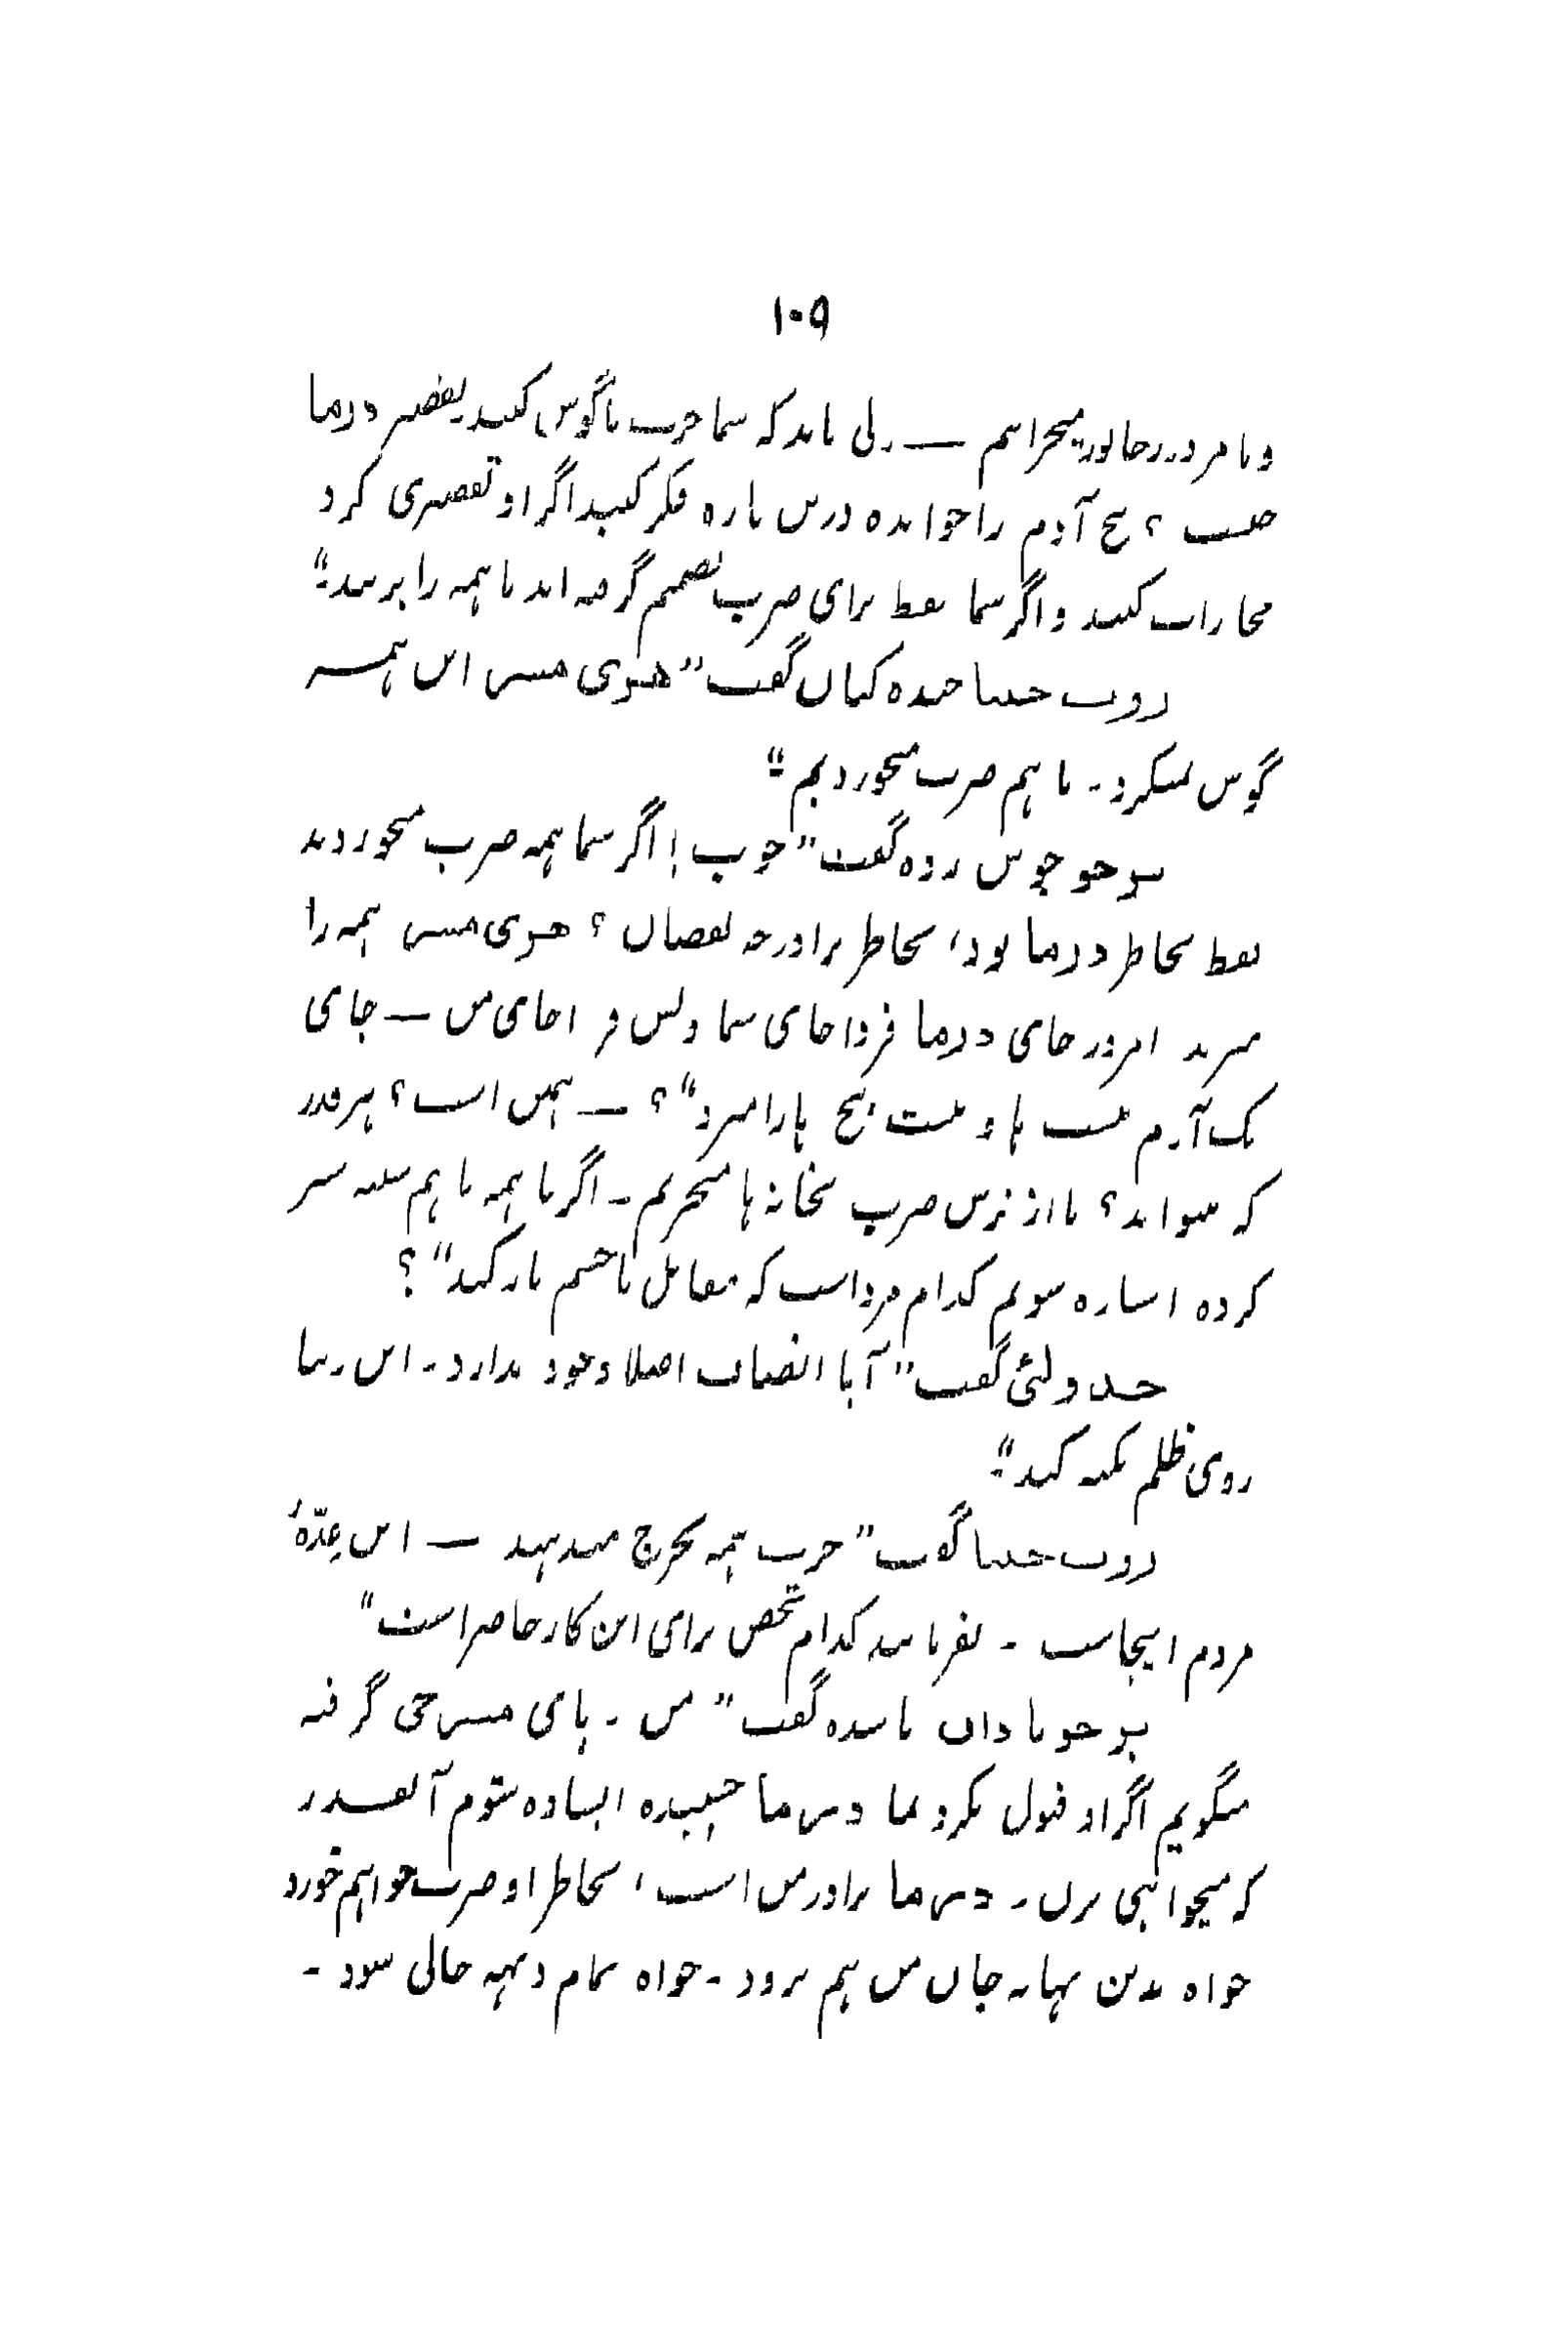 ۱۰۹
و ما مزدور حالوریمخراسم — ولی باید که شما حرب ما گوش کنید تقصیر دورما
چیست ؟ پنج آدم را خوانده درس باره فکر کنید اگر او تقصیری کرد
مجازات کنید و اگر شما فقط برای ضرب تصمیم گرفته اند ما همه را بزنید۔"
روپ چندا خنده کنان گفت "هنوی مس این همه
گوش نمیکرد ۔ ما هم ضرب میخوردیم ۔"
جوش زده گفت "خوب ! اگر شما همه ضرب میخوردید
فقط بخاطر دورما بود، بخاطر برادر چه نقصان ؟ هنوی مس همه را
میزند امروز جای دورما فردا جای شما و پس فردا جای من — جای
یک آدم بیست ها و بیست پنج ها را میزد" ؟ — همین است ؟ هر قدر
که میتواند ؟ ما از ترس ضرب بخانه ها میخزیم ۔ اگر ما همه با هم سینه سپر
کرده استاده شویم کدام مرد است که مقابل ما چشم باز کند" ؟
گفت "آیا انصاف اصلا وجود ندارد ۔ این ریما
روی ظلم تکیه کند ۔"
روپ چندا گفت "حرب همه بخرج میدهید — این عِدّهُ
مردم اینجاست ۔ بفرمایید کدام شخص برای این کار حاضر است"
بر جو بادان ماسده گفت "من ۔ پای مسرجی گرفته
میگویم اگر او قبول نکرد بما چسپیده ایستاده شوم آنقدر
که میخواهی بزن ۔ برادر من است ، بخاطر او ضرب خواهم خورد
خواه بدین بهانه جان من هم برود ۔ خواه تمام دیهه خالی شود ۔